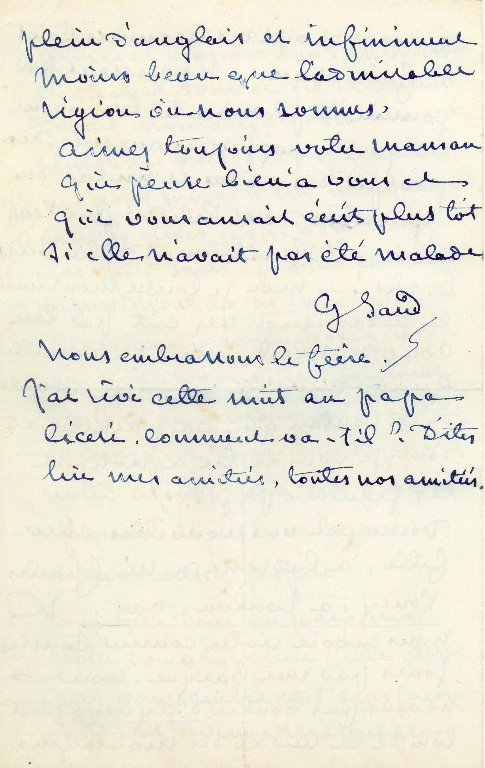 plein d'anglais et infiniment
moins beau que l'admirable
région où nous sommes.
aimez toujours votre maman
qui pense bien à vous et
qui vous aurait écrit plus tôt
si elle n'avait pas été malade
G Sand
Nous embrassons le frère.
J'ai rêvé cette nuit au papa
. comment va-t-il ? Dites
lui mes amitiés, toutes nos amitiés.